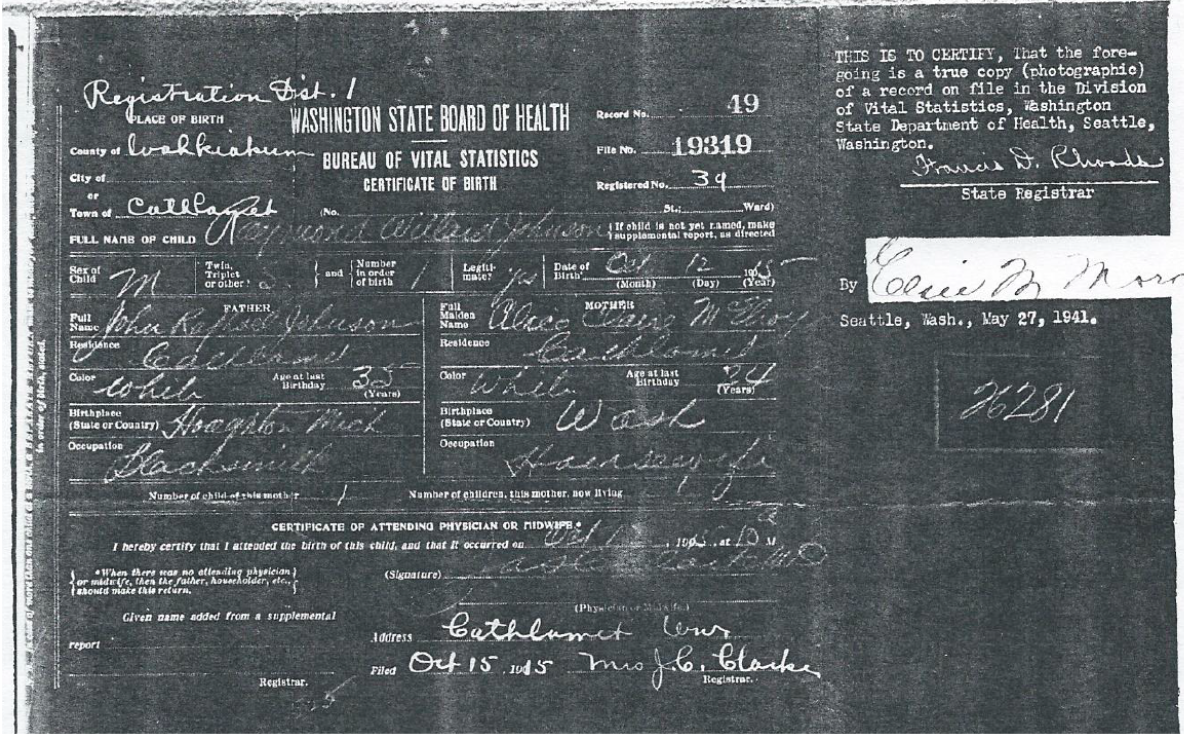 Registration Dist. 1
PLACE OF BIRTH
WASHINGTON STATE BOARD OF HEALTH
BUREAU OF VITAL STATISTICS
CERTIFICATE OF BIRTH
Record No. 49
File No. 19319
Registered No. 39
County of Wahkiakum
City of
or
Town of Cathlamet (No. St.; Ward)
FULL NAME OF CHILD Raymond Willard Johnson { If child is not yet named, make supplemental report, as directed
Sex of Child M Twin, Triplet or other? } and { Number in order of birth 1 Legitimate? yes Date of Birth Oct 12 1915
(Month) (Day) (Year)
FATHER
Full Name John Johnson
Residence Cathlamet
Color White Age at last Birthday 35 (Years)
Birthplace (State or Country) Mich
Occupation Blacksmith
MOTHER
Full Maiden Name Claire
Residence Cathlamet
Color White Age at last Birthday 24 (Years)
Birthplace (State or Country) Wash
Occupation Housewife
Number of child of this mother 1 Number of children, this mother, now living 1
CERTIFICATE OF ATTENDING PHYSICIAN OR MIDWIFE.*
I hereby certify that I attended the birth of this child, and that it occurred on Oct , 191 , at M
{ *When there was no attending physician or midwife, then the father, householder, etc., should make this return. }
(Signature)
(Physician or Midwife)
Given name added from a supplemental
report
Registrar.
Address Cathlamet
Filed Oct 15, 1915 Mrs J. C. Clarke
Registrar.
in order of birth, stated.
THIS IS TO CERTIFY, That the fore-
going is a true copy (photographic)
of a record on file in the Division
of Vital Statistics, Washington
State Department of Health, Seattle,
Washington.
Francis D. Rhoads
State Registrar
By Elsie M.
Seattle, Wash., May 27, 1941.
26281